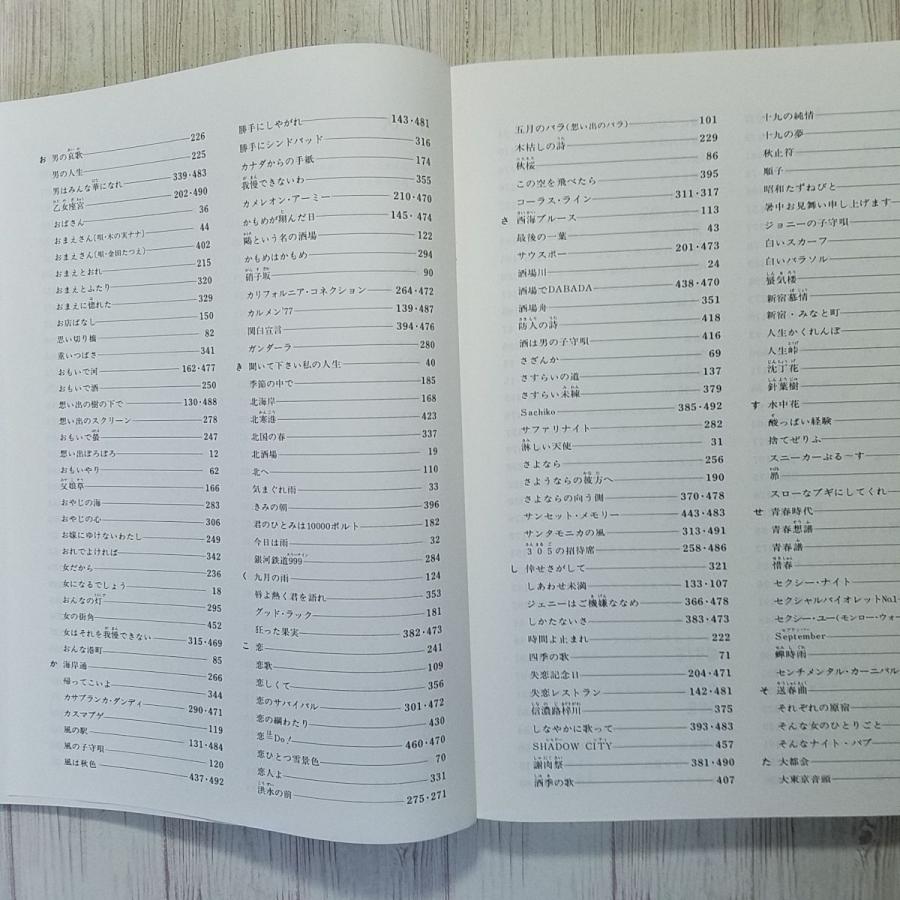 お 男の哀歌 226
男の人生 225
男はみんな華になれ 339・483
乙女座宮 202・490
おばさん 36
おまえさん(唄・木の実ナナ) 44
おまえさん(唄・金田たつえ) 402
おまえとおれ 215
おまえとふたり 320
おまえに惚れた 329
お店ばなし 150
思い切り橋 82
重いつばさ 341
おもいで河 162・477
おもいで酒 250
想い出の樹の下で 130・488
想い出のスクリーン 278
おもいで螢 247
想い出ぽろぽろ 12
おもいやり 62
父娘草 166
おやじの海 283
おやじの心 306
お嫁にゆけないわたし 249
おれでよければ 342
女だから 236
女になるでしょう 18
おんなの灯 295
女の街角 452
女はそれを我慢できない 315・469
おんな港町 85
か 海岸通 266
帰ってこいよ 344
カサブランカ・ダンディ 290・471
カスマプゲ 119
風の駅 131・484
風の子守唄 120
風は秋色 437・492
勝手にしやがれ 143・481
勝手にシンドバッド 316
カナダからの手紙 174
我慢できないわ 355
カメレオン・アーミー 210・470
かもめが翔んだ日 145・474
鷗という名の酒場 122
かもめはかもめ 294
硝子坂 90
カリフォルニア・コネクション 264・472
カルメン'77 139・487
関白宣言 394・476
ガンダーラ 280
き 聞いて下さい私の人生 40
季節の中で 185
北海岸 168
北寒港 423
北国の春 337
北酒場 19
北へ 110
気まぐれ雨 33
きみの朝 396
君のひとみは10000ボルト 182
今日は雨 32
銀河鉄道999 284
く 九月の雨 124
唇よ熱く君を語れ 353
グッド・ラック 181
狂った果実 382・473
こ 恋 241
恋歌 109
恋しくて 356
恋のサバイバル 301・472
恋の綱わたり 430
恋=Do! 460・470
恋ひとつ雪景色 70
恋人よ 331
洪水の前 275・271
五月のバラ(想い出のバラ) 101
木枯しの詩 229
秋桜 86
この空を飛べたら 395
コーラス・ライン 311・317
さ 西海ブルース 113
最後の一葉 43
サウスポー 201・473
酒場川 24
酒場でDABADA 438・470
酒場舟 351
防人の詩 418
酒は男の子守唄 416
さざんか 69
さすらいの道 137
さすらい未練 379
Sachiko 385・492
サファリナイト 282
淋しい天使 31
さよなら 256
さようならの彼方へ 190
さよならの向う側 370・478
サンセット・メモリー 443・483
サンタモニカの風 313・491
305の招待席 258・486
し 倖せさがして 321
しあわせ未満 133・107
ジェニーはご機嫌ななめ 366・478
しかたないさ 383・473
時間よ止まれ 222
四季の歌 71
失恋記念日 204・471
失恋レストラン 142・481
信濃路梓川 375
しなやかに歌って 393・483
SHADOW CITY 457
謝肉祭 381・490
酒季の歌 407
十九の純情
十九の夢
秋止符
順子
昭和たずねびと
暑中お見舞い申し上げます
ジョニーの子守唄
白いスカーフ
白いパラソル
蜃気楼
新宿慕情
新宿・みなと町
人生かくれんぼ
人生峠
沈丁花
針葉樹
す 水中花
酸っぱい経験
捨てぜりふ
スニーカーぶる〜す
昴
スローなブギにしてくれ
せ 青春時代
青春想譜
青春譜
惜春
セクシー・ナイト
セクシャルバイオレットNo.1
セクシー・ユー(モンロー・ウォー
September
蟬時雨
センチメンタル・カーニバル
そ 送春曲
それぞれの原宿
そんな女のひとりごと
そんなナイト・パブ
た 大都会
大東京音頭